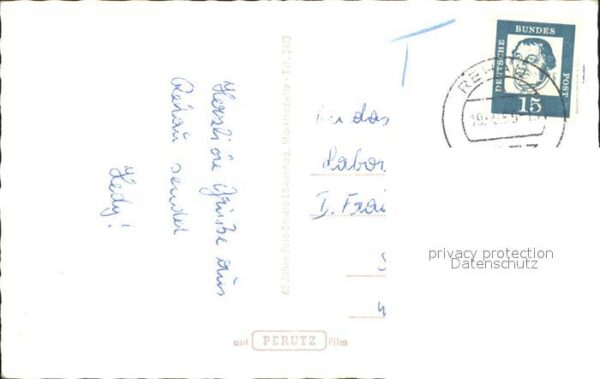 Herzliche Grüße aus
Rehau sendet
Hedy!
An das
Labor
I. Frai
DEUTSCHE
BUNDES
POST
15
REHAU
privacy protection
Datenschutz
auf PERUTZ Film